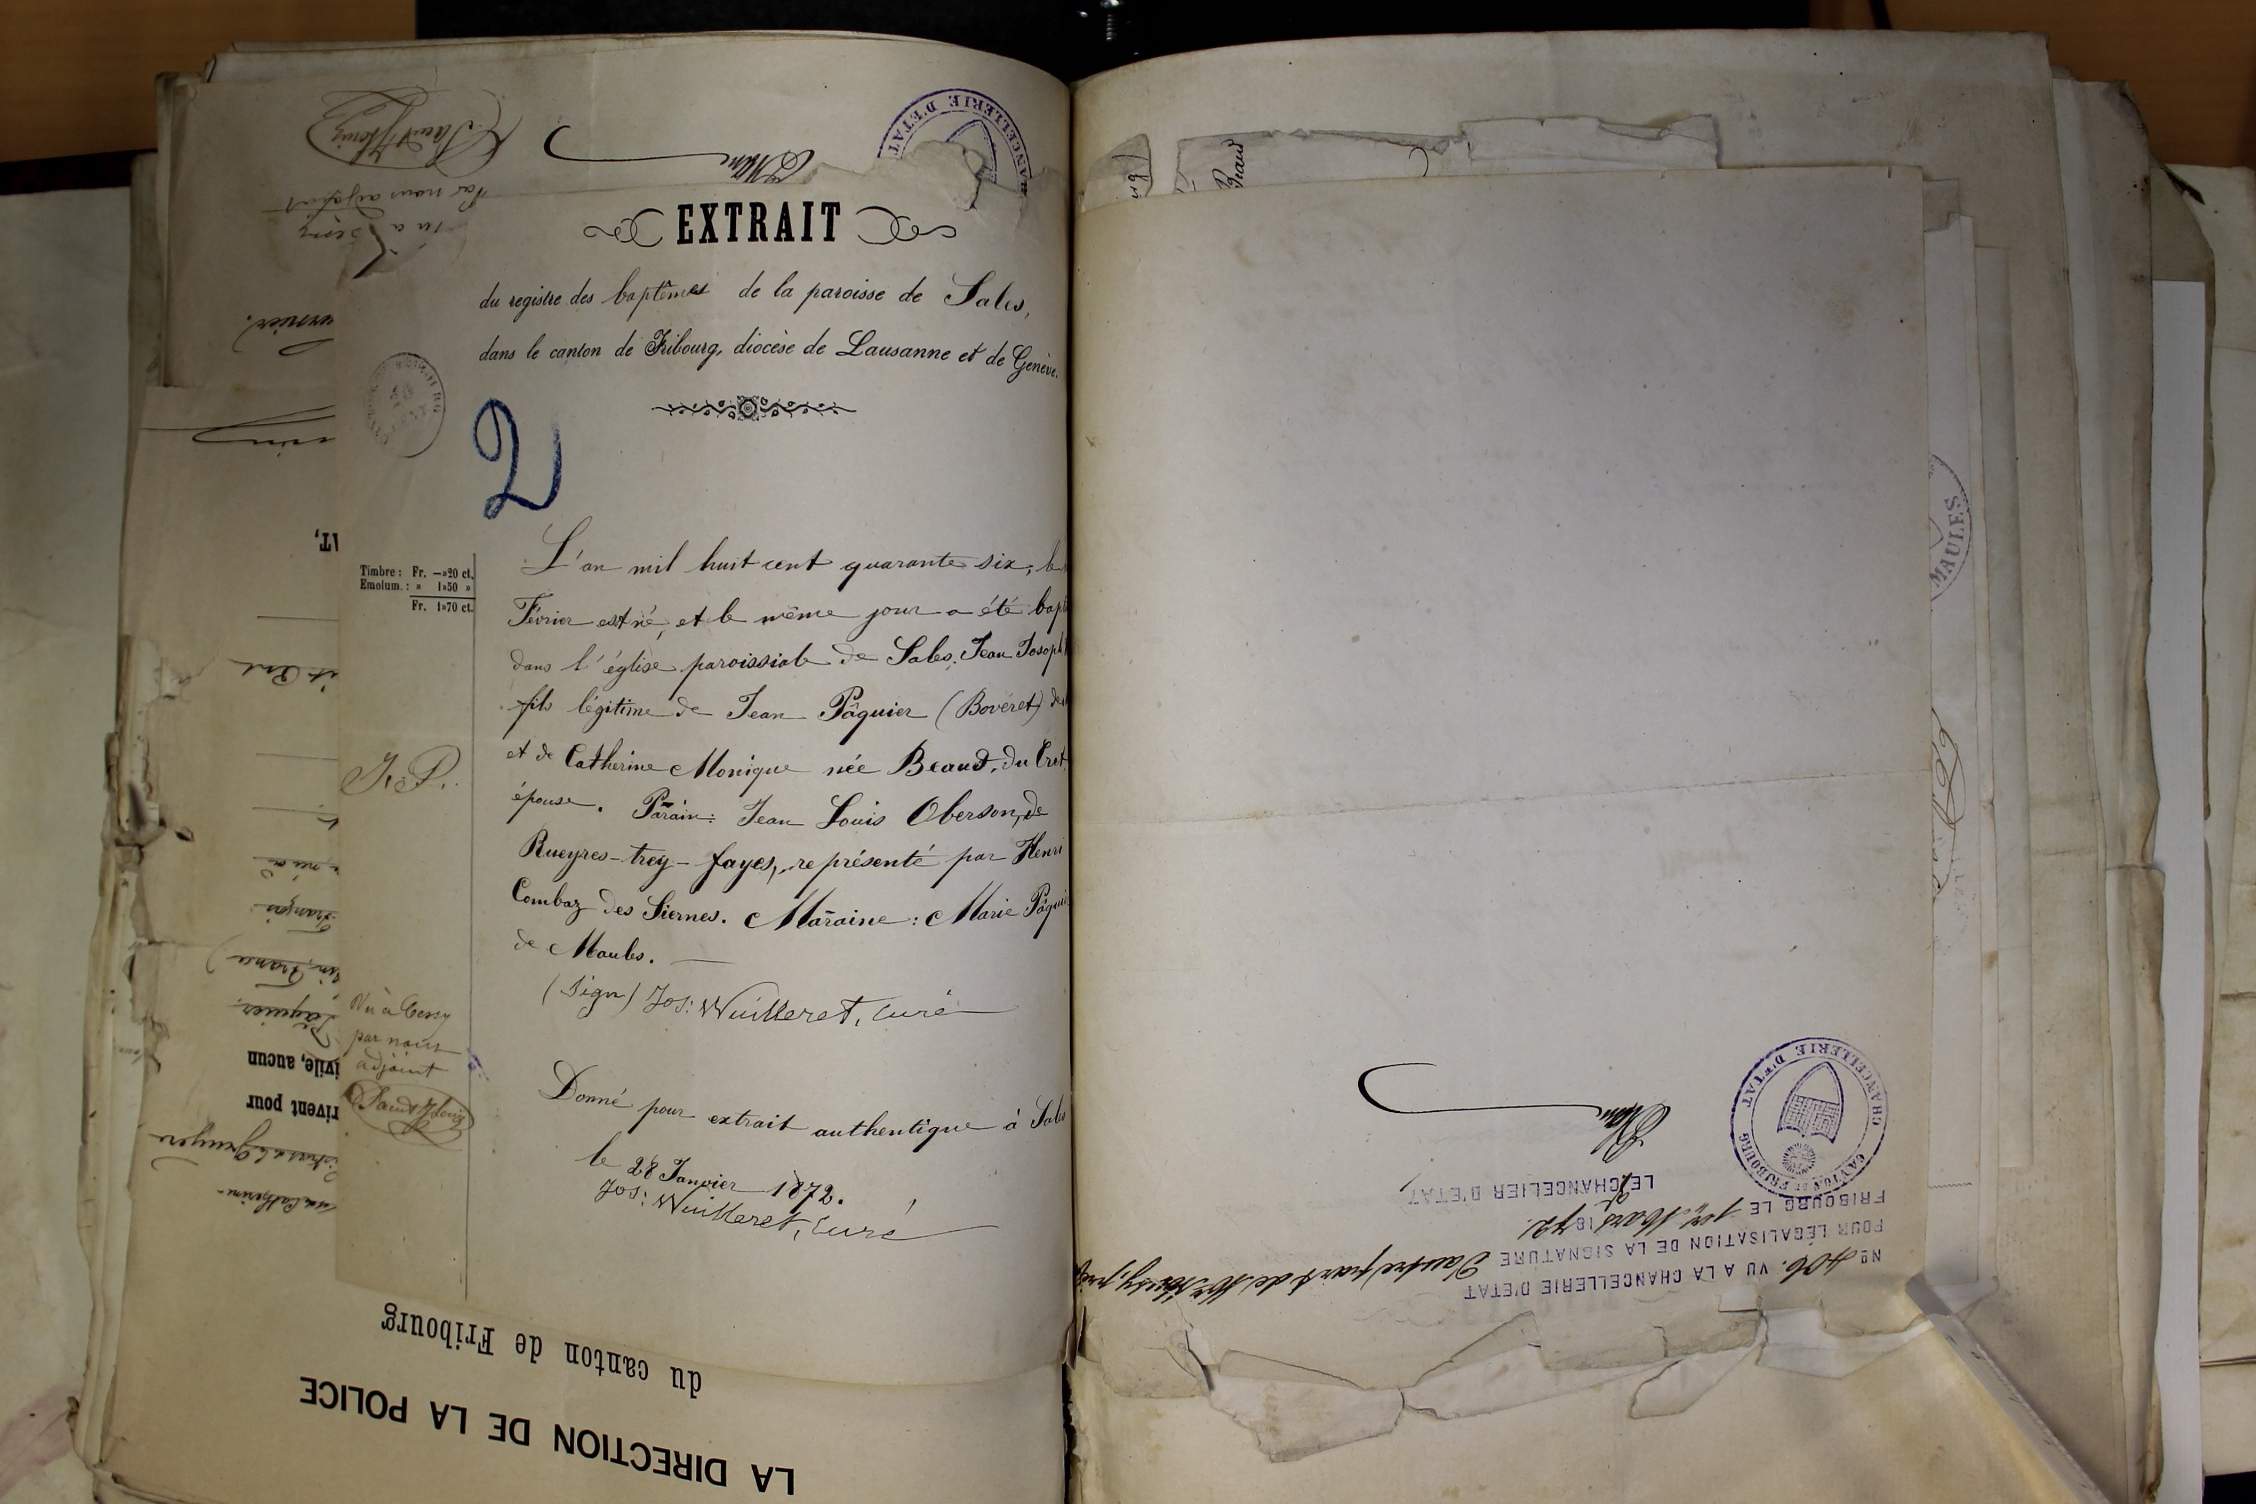 EXTRAIT
du registre des baptêmes de la paroisse de Sales,
dans le canton de Fribourg, diocèse de Lausanne et de Genève.
2
Timbre: Fr. —»20 ct.
Emolum.: » 1»50 »
Fr. 1»70 ct.
L'an mil huit cent quarante six, le
Février est né, et le même jour a été bapt
dans l'église paroissiale de Sales, Jean Joseph
fils légitime de Jean Pâquier (Boveret) de
et de Catherine Monique née Beaud, du Cret
épouse. Parain: Jean Louis Oberson, de
Rueyres-trey-fayes, représenté par Henri
Combaz des Siernes. Maraine: Marie Pâqui
de Maules.
(Sign) Jos: Wuilleret, curé
Donné pour extrait authentique à Sales
le 28 Janvier 1872.
Jos: Wuilleret, curé
J. P.
Vu à Cessy
par nous
adjoint
CHANCELLERIE D'ETAT
Par nous adjoint
ivile, aucun
rivent pour
du canton de Fribourg
LA DIRECTION DE LA POLICE
Beaud
MAULES
No 406. VU A LA CHANCELLERIE D'ETAT
POUR LÉGALISATION DE LA SIGNATURE d'autre part de Mr
FRIBOURG LE 1er Mars 1872.
LE CHANCELIER D'ETAT,
CHANCELLERIE D'ETAT CANTON DE FRIBOURG